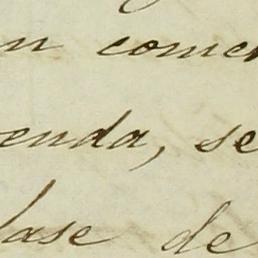 n comen
enda, se
lase de